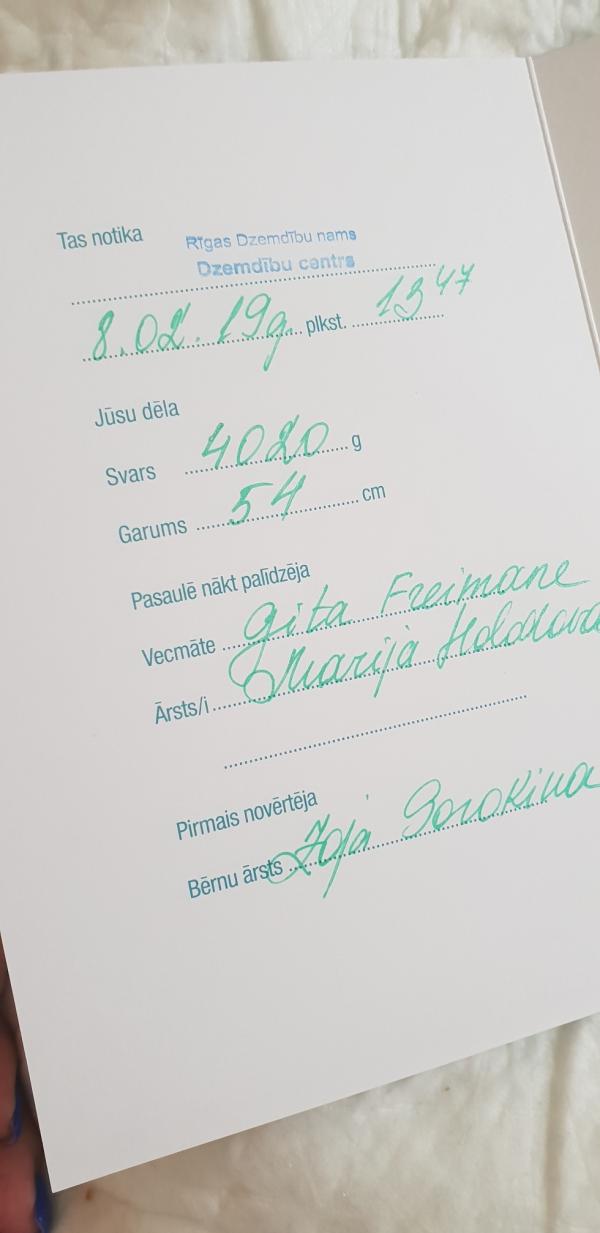 Tas notika
Rīgas Dzemdību nams
Dzemdību centrs
8.02.19g. plkst. 13 47
Jūsu dēla
Svars 4020 g
Garums 54 cm
Pasaulē nākt palīdzēja
Vecmāte Gita Freimane
Ārsts/i Marija
Pirmais novērtēja
Bērnu ārsts Zoja Sorokina